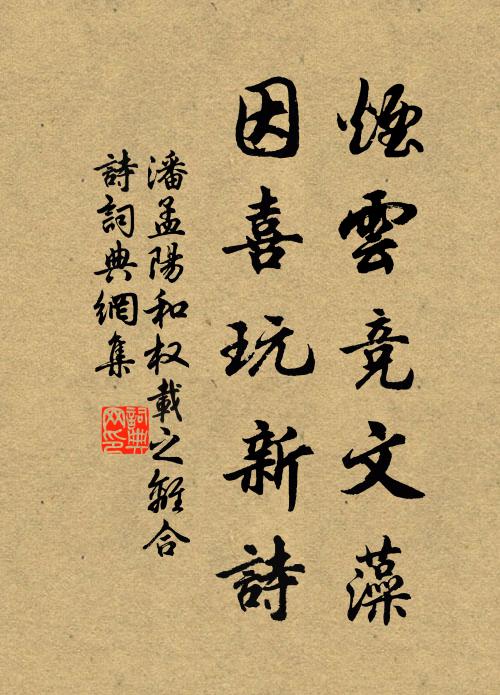 煙雲竞文藻
因喜玩新詩
潘孟陽和权載之離合
詩詞典網集
詞典网印